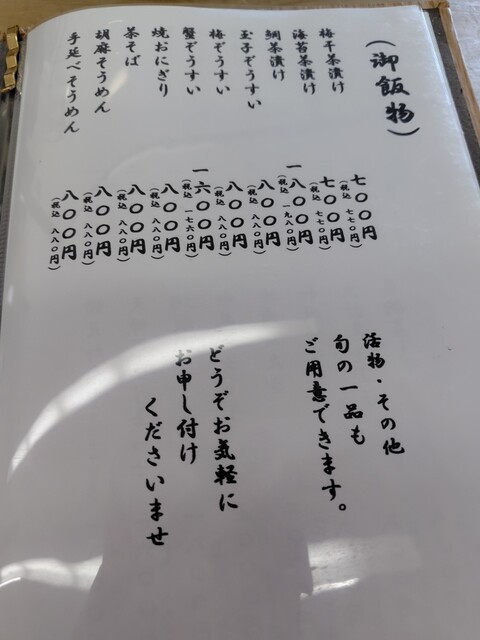 （御飯物）
梅干茶漬け 七〇〇円（税込 七七〇円）
海苔茶漬け 七〇〇円（税込 七七〇円）
鯛茶漬け 一八〇〇円（税込 一九八〇円）
玉子ぞうすい 八〇〇円（税込 八八〇円）
梅ぞうすい 八〇〇円（税込 八八〇円）
蟹ぞうすい 一六〇〇円（税込 一七六〇円）
焼おにぎり 八〇〇円（税込 八八〇円）
茶そば 八〇〇円（税込 八八〇円）
胡麻そうめん 八〇〇円（税込 八八〇円）
手延べそうめん 八〇〇円（税込 八八〇円）
活物・その他
旬の一品も
ご用意できます。
どうぞお気軽に
お申し付け
くださいませ